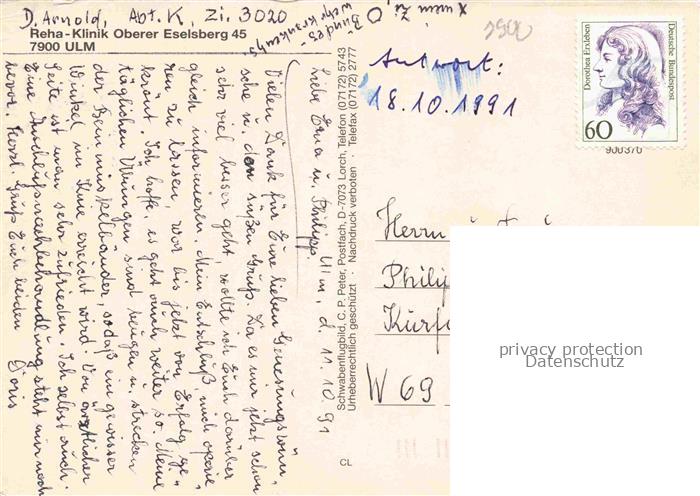 D. Arnold, Abt. K, Zi. 3020
Reha-Klinik Oberer Eselsberg 45
7900 ULM
Bundes-
wehrkrankenhs
Ulm, d. 11.10.91
Liebe Erna u. Philipp,
Vielen Dank für Eure lieben Genesungswün„
sche u. den süßen Gruß. Da es mir jetzt schon
sehr viel besser geht, wollte ich Euch darüber
gleich informieren. Mein Entschluß, mich operie„
ren zu lassen, war bis jetzt von Erfolg ge„
krönt. Ich hoffe, es geht auch weiter so. Meine
täglichen Übungen sind beugen u. strecken
der Beinmuskelbänder, sodaß ein gewisser
Winkel im Knie erreicht wird. Von ärztlicher
Seite ist man sehr zufrieden. Ich selbst auch.
Eine Anschlußnachbehandlung steht mir noch
bevor. Herzl. Grüße Euch beiden
Doris
Schwabenflugbild, C. P. Peter, Postfach, D-7073 Lorch, Telefon (07172) 5743
Urheberrechtlich geschützt · Nachdruck verboten · Telefax (07172) 2777
CL
Antwort:
18.10.1991
Dorothea Erxleben
Deutsche Bundespost
60
900370
Herrn u.
Philip
Kurf
W 69
privacy protection
Datenschutz